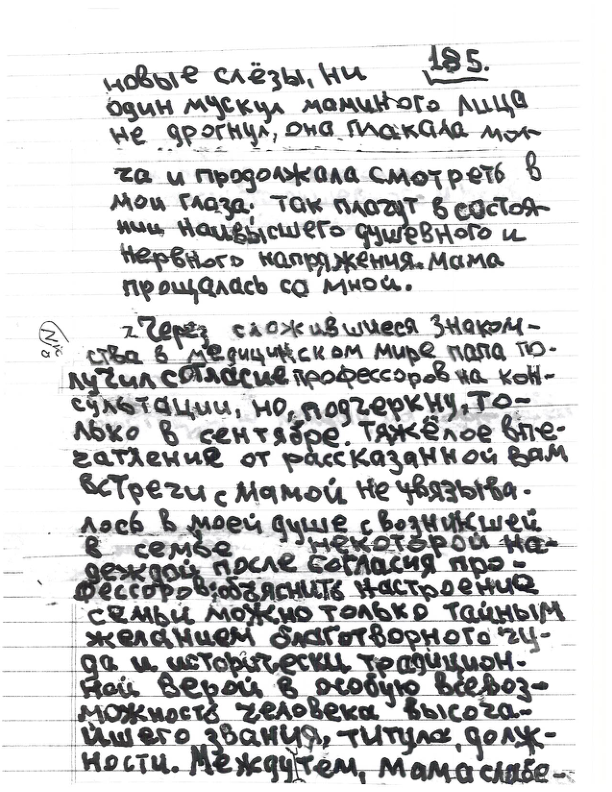 185.
новые слёзы, ни
один мускул маминого лица
не дрогнул, она плакала мол-
ча и продолжала смотреть в
мои глаза. так плачут в состоя-
нии наивысшего душевного и
нервного напряжения. Мама
прощалась со мной.
Через сложившиеся знаком-
ства в медицинском мире папа по-
лучил согласие профессоров на кон-
сультации, но, подчеркну, то-
лько в сентябре. Тяжёлое впе-
чатление от рассказанной вам
встречи с мамой не увязыва-
лось в моей душе с возникшей
в семье некоторой на-
деждой после согласия про-
фессоров: объяснить настроение
семьи можно только тайным
желанием благотворного чу-
да и исторически традицион-
ной верой в особую всевоз-
можность человека высоча-
йшего звания, титула, долж-
ности. Между тем, мама слабе-